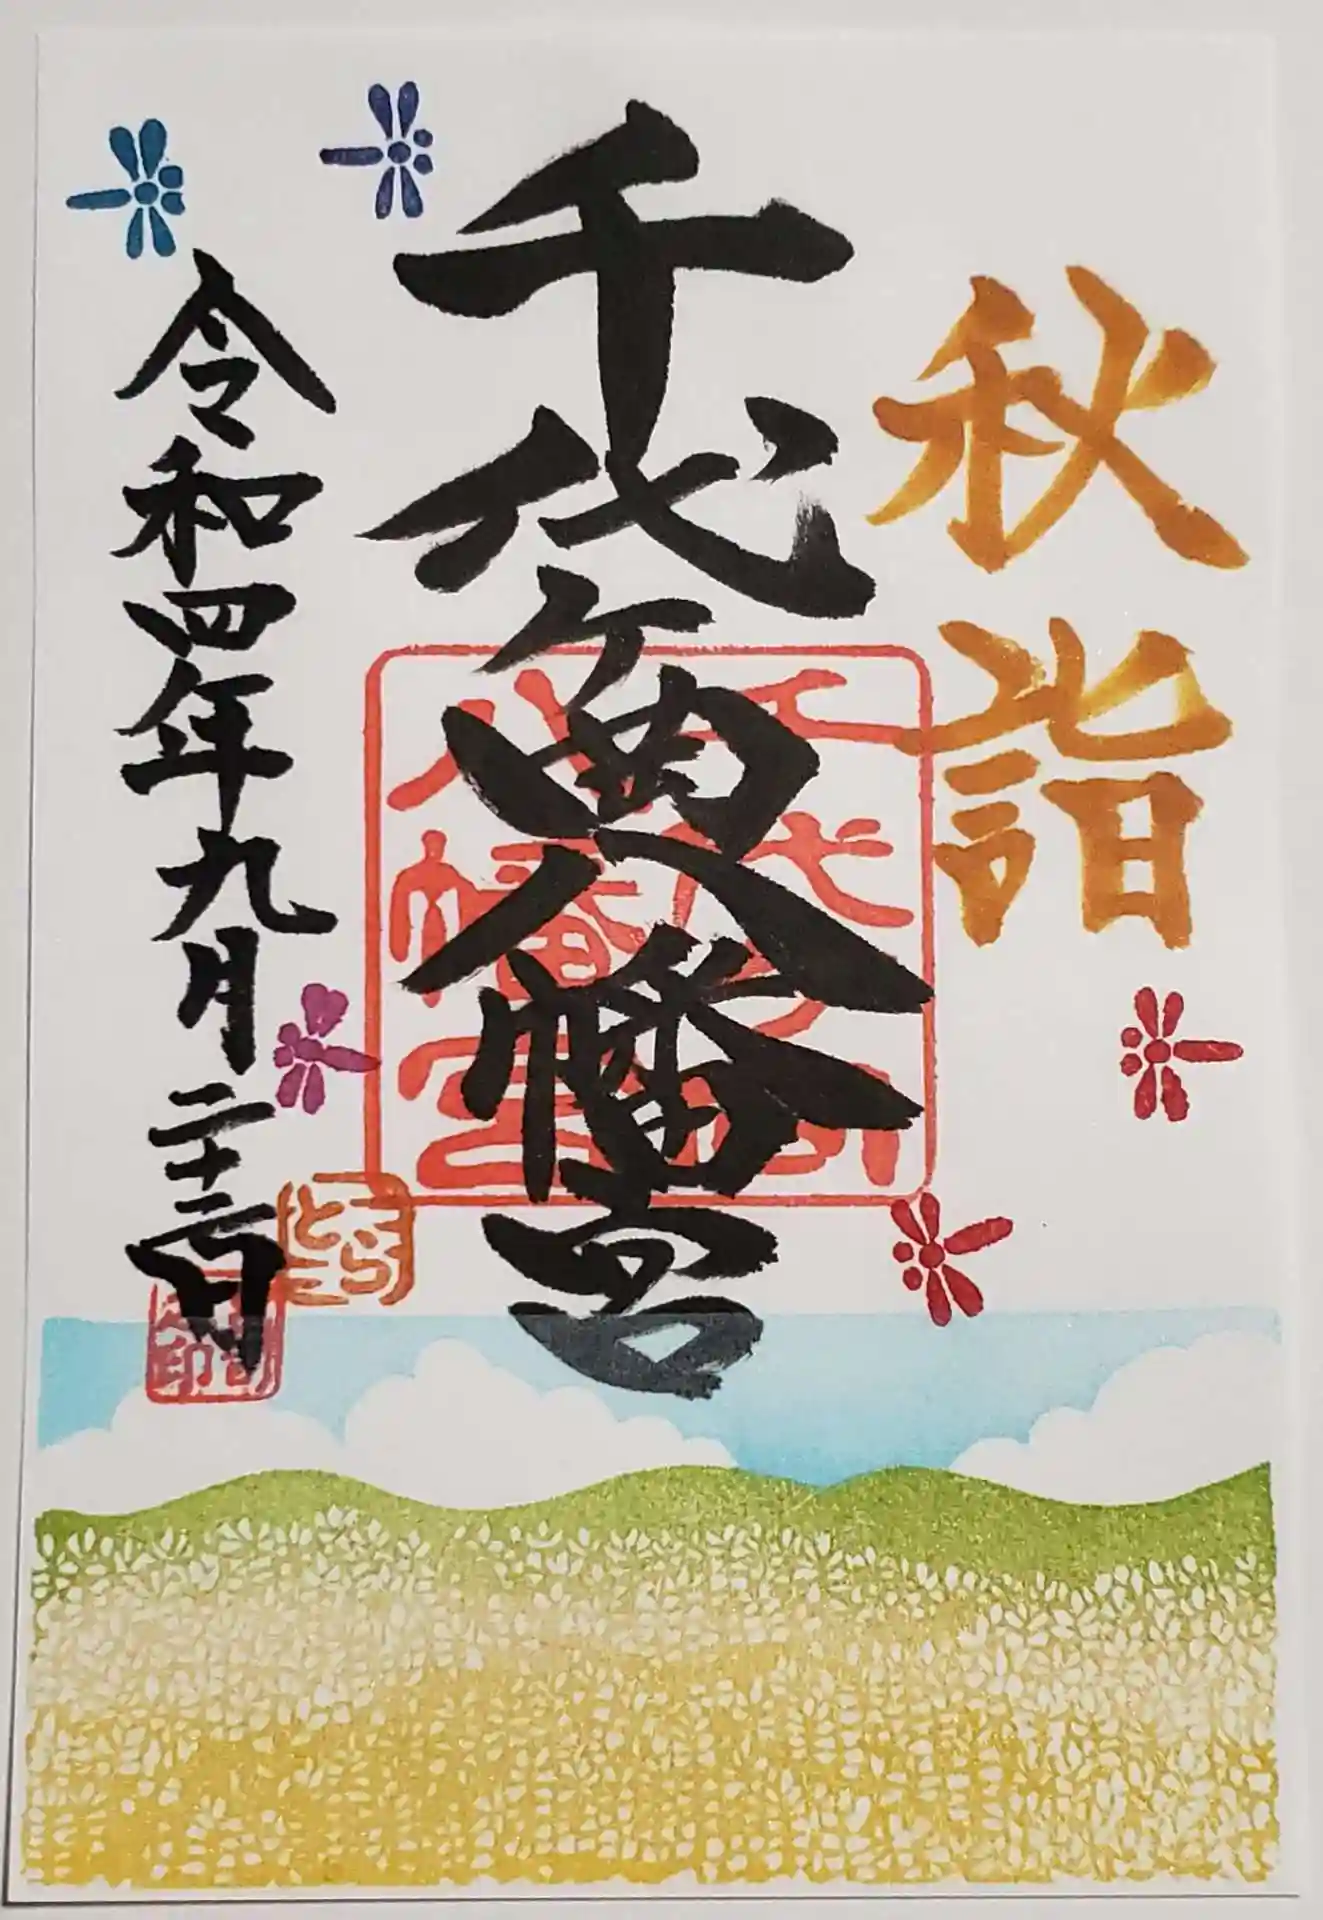 秋詣
千代ヶ岡八幡宮
千代ヶ岡
八幡宮
令和四年九月二十日